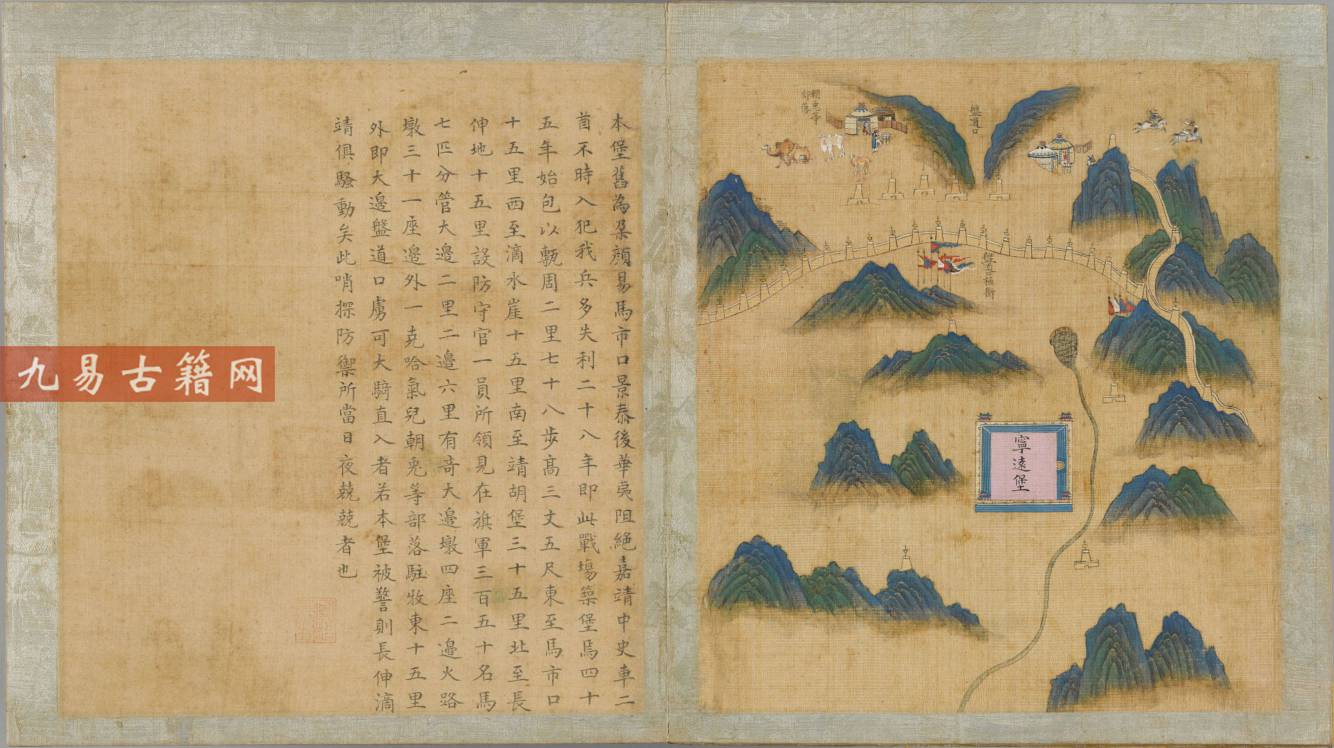 本堡舊為朶顏易馬市口景泰後華夷阻絕嘉靖中史車二
酋不時入犯我兵多失利二十八年即此戰塲築堡焉四十
五年始包以甎周二里七十八步高三丈五尺東至馬市口
十五里西至滴水崖十五里南至靖胡堡三十五里北至長
伸地十五里設防守官一員所領見在旗軍三百五十名馬
七匹分管大邊二里二邊六里有奇大邊墩四座二邊火路
墩三十一座邊外一克哈氣兒朝兎等部落駐牧東十五里
外即大邊盤道口虜可大騎直入者若本堡被警則長伸滴
靖俱騷動矣此哨探防禦所當日夜兢兢者也
朝兎等
部落
盤道口
寧遠堡
九易古籍网